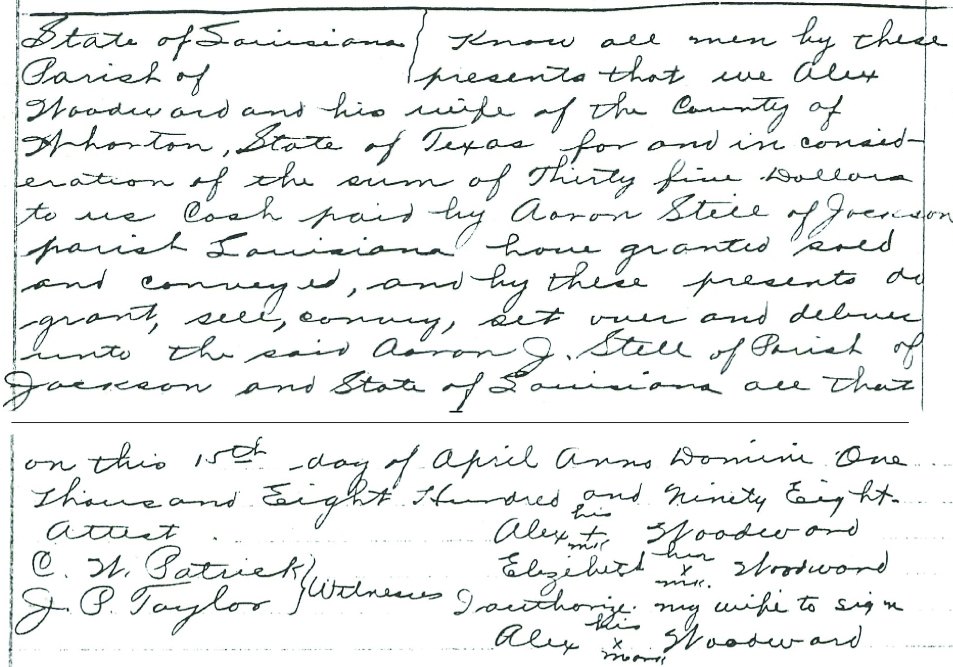 State of Louisiana } Know all men by these
Parish of } presents that we Alex
Woodward and his wife of the County of
Whorton, State of Texas for and in consid-
eration of the sum of Thirty five Dollars
to us Cash paid by Aaron Stell of Jackson
parish Louisiana have granted sold
and conveyed, and by these presents do
grant, sell, convey, set over and deliver
unto the said Aaron J. Stell of Parish of
Jackson and State of Louisiana all that
on this 15th day of April Anno Domini One
Thousand Eight Hundred and Ninety Eight
Attest
his
Alex + Woodward
mk
C. W. Patrick
her
Elizebeth x Woodward
mk.
J. P. Taylor } Witnesses
I authorize my wife to sign
his
Alex x Woodward
mark